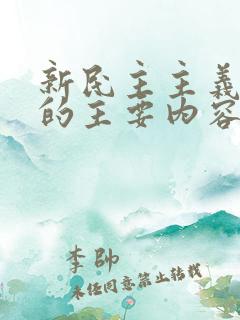 新民主主義
的主要内容
李帥
未经同意禁止转载